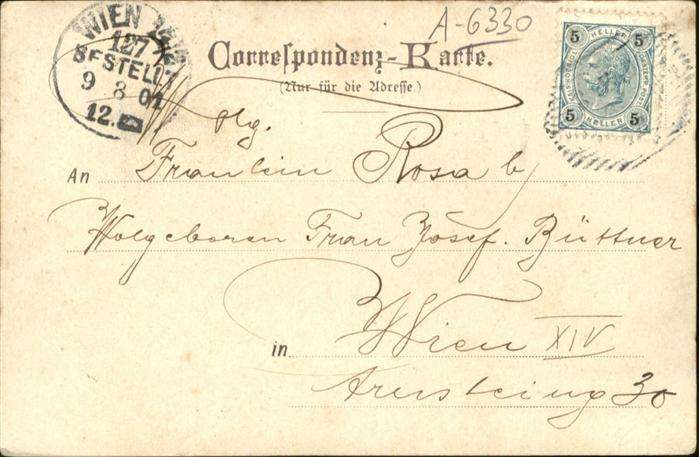 A-6330
WIEN
127
BESTELLT
9 8 01
12.
5 HELLER 5
5 HELLER 5
Correspondenz-Karte.
(Nur für die Adresse)
An Fräulein Rosa b/
Wolgeboran Frau Josef. Büttner
in Wien XIV
30